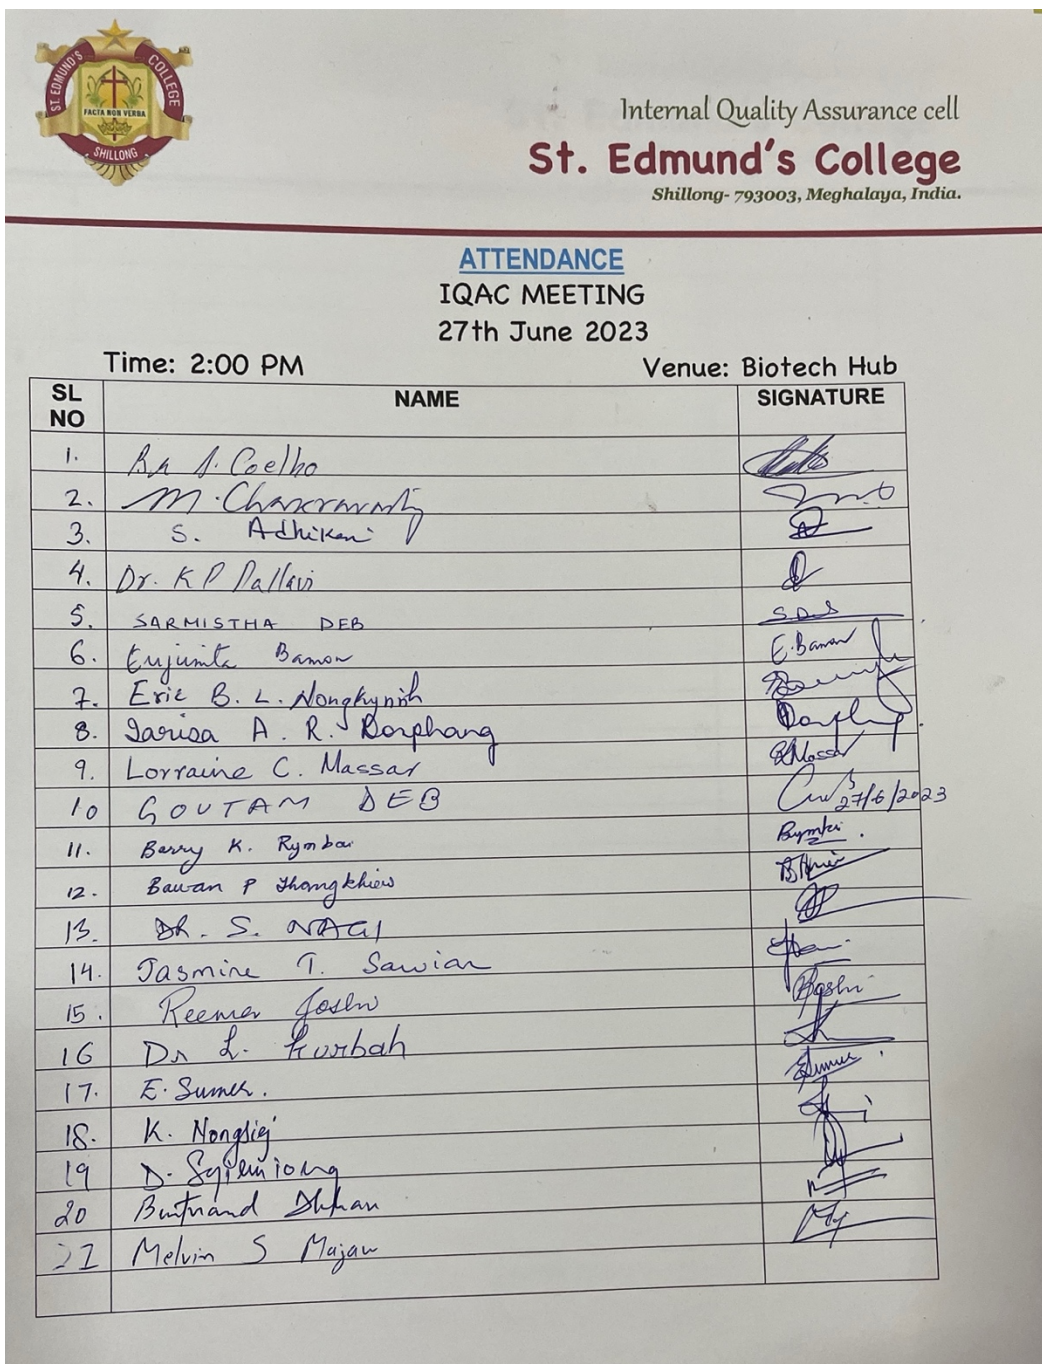 ST. EDMUND'S COLLEGE
FACTA NON VERBA
SHILLONG
Internal Quality Assurance cell
St. Edmund's College
Shillong- 793003, Meghalaya, India.
ATTENDANCE
IQAC MEETING
27th June 2023
Time: 2:00 PM Venue: Biotech Hub
SL NO NAME SIGNATURE
1. A. Coelho
2. M. Chakravarty
3. S. Adhikari
4. Dr. K P Pallavi
5. SARMISTHA DEB
6. Eujinita Bamon E. Bamon
7. Eric B. L. Nongkynrih
8. Iarisa A. R. Dorphang
9. Lorraine C. Massar
10 GOUTAM DEB 27/6/2023
11. Barry K. Rymbai
12. Bawan P Thongkhiew
13. DR. S. NAGI
14. Jasmine T. Sawian
15. Reema Joshi
16 Dr L. Kurbah
17. E. Sumer.
18. K. Nongsiej
19 D. Syiemiong
20 Dkhar
21 Melvin S Majaw